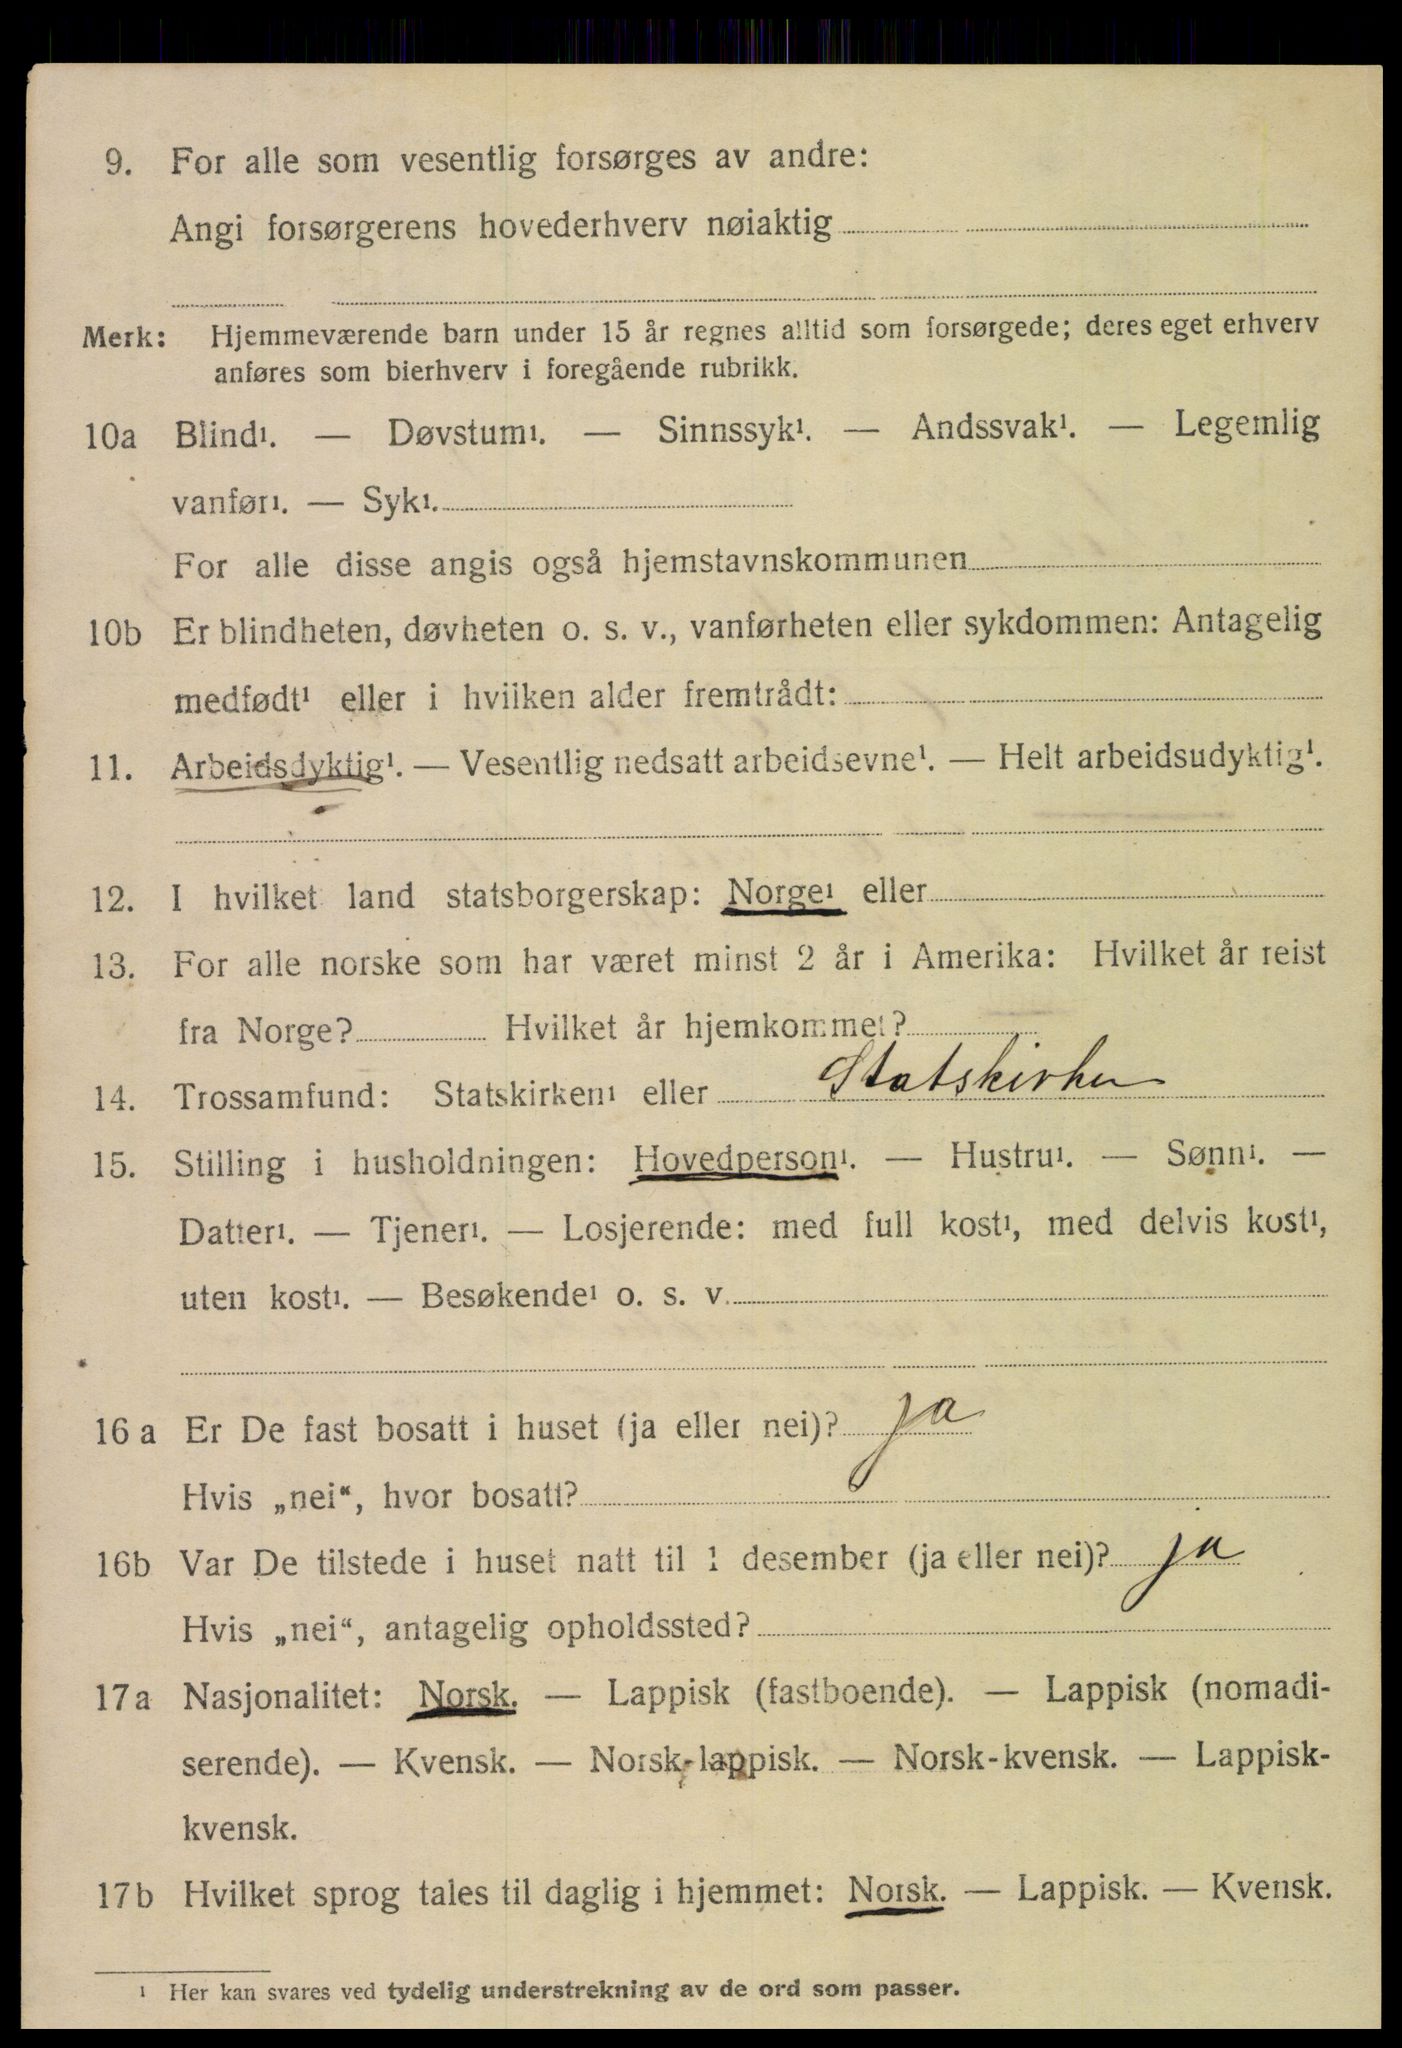 9. For alle som vesentlig forsørges av andre:
Angi forsørgerens hovederhverv nøiaktig
Merk: Hjemmeværende barn under 15 år regnes alltid som forsørgede; deres eget erhverv
anføres som bierhverv i foregående rubrikk.
10a Blind¹. — Døvstum¹. — Sinnssyk¹. — Andssvak¹. — Legemlig
vanfør¹. — Syk¹.
For alle disse angis også hjemstavnskommunen
10b Er blindheten, døvheten o. s. v., vanførheten eller sykdommen: Antagelig
medfødt¹ eller i hvilken alder fremtrådt:
11. Arbeidsdyktig¹. — Vesentlig nedsatt arbeidsevne¹. — Helt arbeidsudyktig¹.
12. I hvilket land statsborgerskap: Norge¹ eller
13. For alle norske som har været minst 2 år i Amerika: Hvilket år reist
fra Norge? Hvilket år hjemkommet?
14. Trossamfund: Statskirken¹ eller Statskirken
15. Stilling i husholdningen: Hovedperson¹. — Hustru¹. — Sønn¹. —
Datter¹. — Tjener¹. — Losjerende: med full kost¹, med delvis kost¹,
uten kost¹. — Besøkende¹ o. s. v.
16 a Er De fast bosatt i huset (ja eller nei)? ja
Hvis „nei“, hvor bosatt?
16b Var De tilstede i huset natt til 1 desember (ja eller nei)? ja
Hvis „nei“, antagelig opholdssted?
17a Nasjonalitet: Norsk. — Lappisk (fastboende). — Lappisk (nomadi-
serende). — Kvensk. — Norsk-lappisk. — Norsk-kvensk. — Lappisk-
kvensk.
17b Hvilket sprog tales til daglig i hjemmet: Norsk. — Lappisk. — Kvensk.
¹ Her kan svares ved tydelig understrekning av de ord som passer.